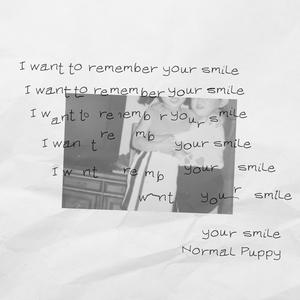 I want to remember your smile
I want to remember your smile
I want to re memb r your smile
I wan t re mb your smile
I w nt re mb your smile
w nt your smile
your smile
Normal Puppy